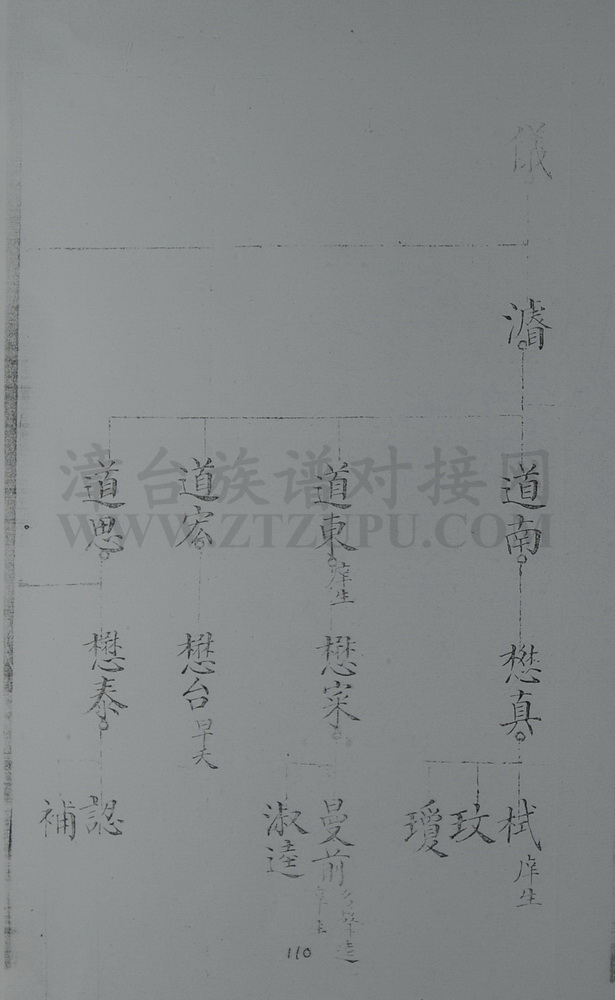 儀
濬
道南
道東庠生
道宏
道思
懋真
懋寀
懋台早夭
懋泰
栻庠生
玟
瓊
曼前
淑逵
認
補
漳台族谱对接网
WWW.ZTZUPU.COM
110